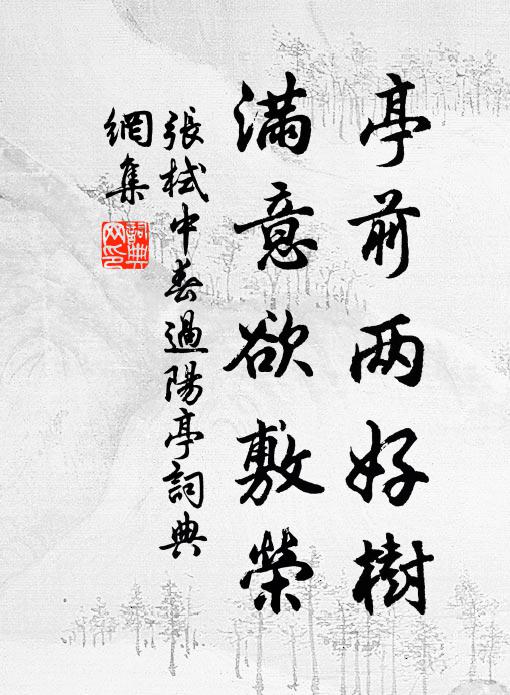 亭前两好樹
滿意欲敷榮
張栻中春過陽亭詞典
網集
詞典网印